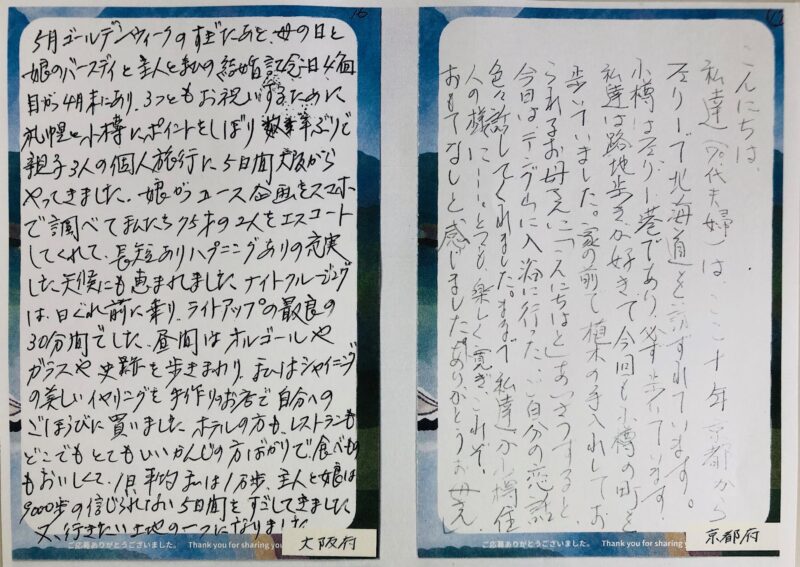 16
5月ゴールデンウィークのすぎたあと、母の日と
娘のバースデイと主人と私の結婚記念日4個
目が4月末にあり、3つともお祝いするために
札幌と小樽にポイントをしぼり 数年ぶりで
親子3人の個人旅行に5日間大阪から
やってきました。娘がコース企画をスマホ
で調べて私たち75才の2人をエスコート
してくれて、長短ありハプニングありの充実
した天候にも恵まれました ナイトクルージング
は、日ぐれ前に乗り、ライトアップの最良の
30分間でした。昼間はオルゴールや
ガラスや史跡を歩きまわり、私はシャイニング
の美しいイヤリングを手作りのお店で自分への
ごほうびに買いました ホテルの方も、レストランも
どこでもとてもいいかんじの方ばかりで、食べもの
もおいしくて、1日平均私は1万歩、主人と娘は
9000歩の信じられない5日間をすごしてきました
又、行きたい土地の一つになりました
ご応募ありがとうございました。 Thank you for sharing you
大阪府
こんにちは、
私達(70代夫婦)は、ここ十年京都から
フェリーで北海道を訪ずれています。
小樽はフェリー港であり、必ず歩いています。
私達は路地歩きが好きで今回も小樽の町を
歩いていました。家の前で植木の手入れしてお
られるお母さんに「こんにちは」とあいさつすると、
今日は、テングウ山に入浴に行った、ご自分の恋話
色々話してくれました。まるで私達が小樽住
人の様に……とても楽しく寛ぎ、これぞ!
おもてなしと感じました。ありがとうお母さん
ご応募ありがとうございました。 Thank you for sharing you
京都府